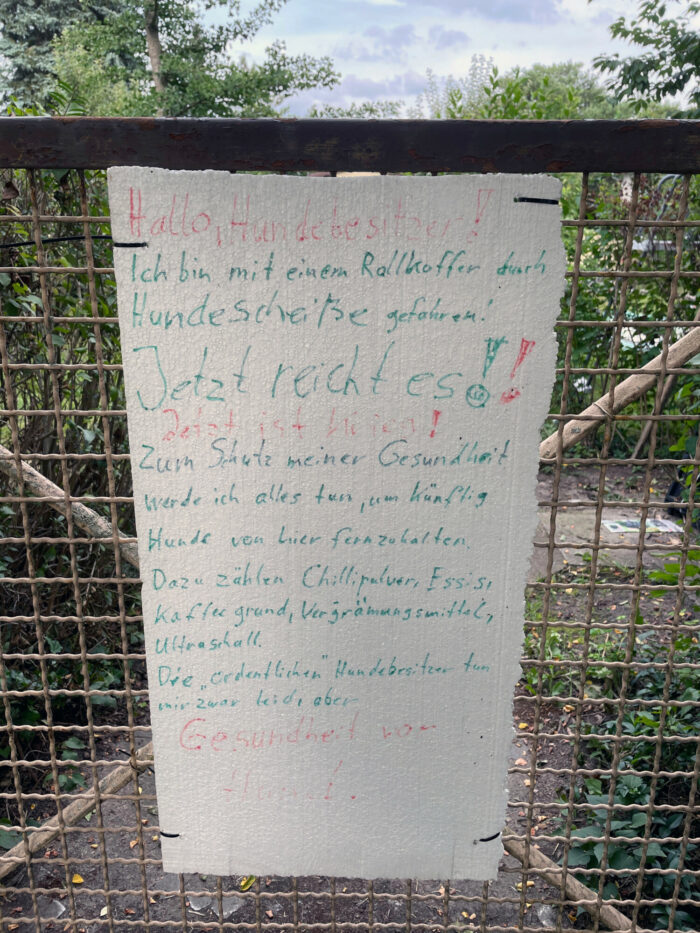 Hallo, Hundebesitzer!
Ich bin mit einem Rollkoffer durch
Hundescheiße gefahren!
Jetzt reicht es!!
Jetzt ist !
Zum Schutz meiner Gesundheit
werde ich alles tun, um künftig
Hunde von hier fernzuhalten.
Dazu zählen Chillipulver, Essig,
Kaffeegrund, Vergrämungsmittel,
Ultraschall.
Die „ordentlichen" Hundebesitzer tun
mir zwar leid, aber
Gesundheit vor
Hund!.